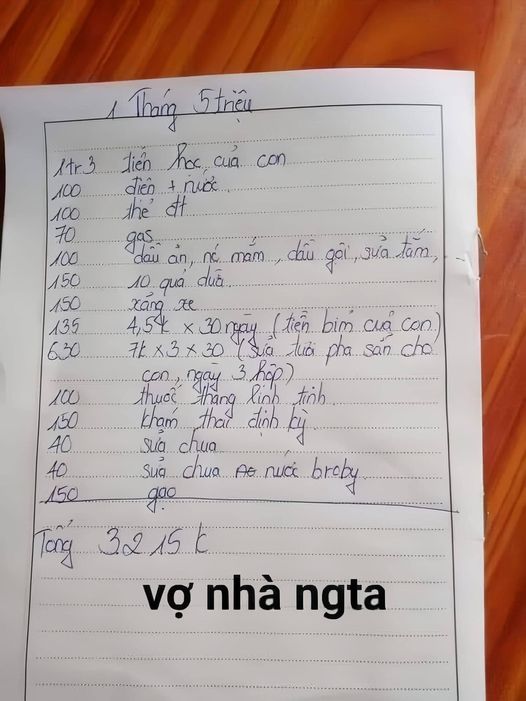 1 Tháng 5 triệu
1tr3 tiền học của con
100 điện + nước.
100 thẻ đt
70 gas
100 dầu ăn, nc mắm, dầu gội, sữa tắm,
150 10 quả dừa
150 xăng xe
135 4,5k x 30 ngày (tiền bỉm của con)
630 7k x 3 x 30 (sữa tươi pha sẵn cho
con, ngày 3 hộp)
100 thuốc thang linh tinh
150 khám thai định kỳ
40 sữa chua
40 sữa chua nước
150 gạo
Tổng 3215k
vợ nhà ngta